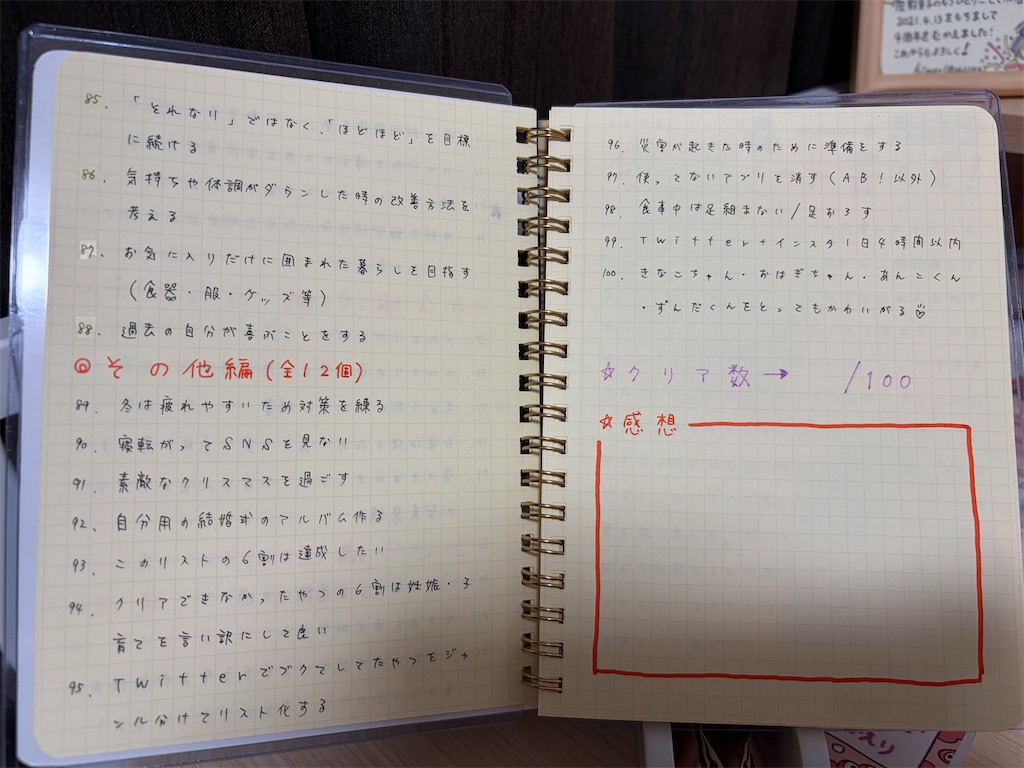 85. 「それなり」ではなく、「ほどほど」を目標
に続ける
86. 気持ちや体調がダウンした時の改善方法を
考える
87. お気に入りだけに囲まれた暮らしを目指す
(食器・服・グッズ等)
88. 過去の自分が喜ぶことをする
◎その他編(全12個)
89. 冬は疲れやすいため対策を練る
90. 寝転がってSNSを見ない
91. 素敵なクリスマスを過ごす
92. 自分用の結婚式のアルバム作る
93. このリストの6割は達成したい
94. クリアできなかったやつの6割は妊娠・子
育てを言い訳にして良い
95. Twitterでブクマしてたやつをジャ
ンル分けてリスト化する
96. 災害が起きた時のために準備をする
97. 使ってないアプリを消す(AB!以外)
98. 食事中は足組まない/足おろす
99. Twitter+インスタ1日4時間以内
100. きなこちゃん・おはぎちゃん・あんこくん
・ずんだくんをとってもかわいがる♡
☆クリア数→ /100
☆感想
2021.4.13をもちまして
4周年をむかえました!
これからもよろしく